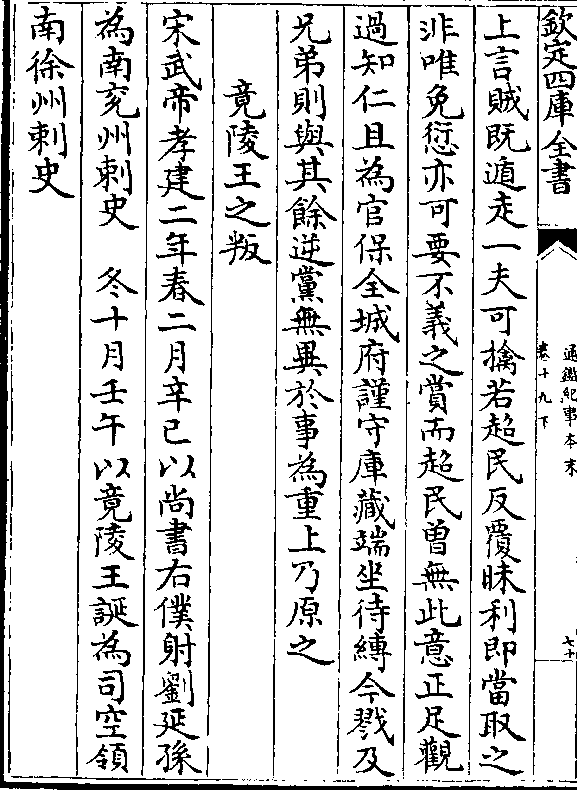 欽定四庫全書
通鑑紀事本末
卷十九下
七十
上言賊既遁走一夫可擒若超民反覆昧利即當取之
非唯免愆亦可要不義之賞而超民曽無此意正足觀
過知仁且為官保全城府謹守庫藏端坐待縛今戮及
兄弟則與其餘逆黨無異於事為重上乃原之
竟陵王之叛
宋武帝孝建二年春二月辛已以尚書右僕射劉延孫
為南兖州刺史　冬十月壬午以竟陵王誕為司空領
南徐州刺史